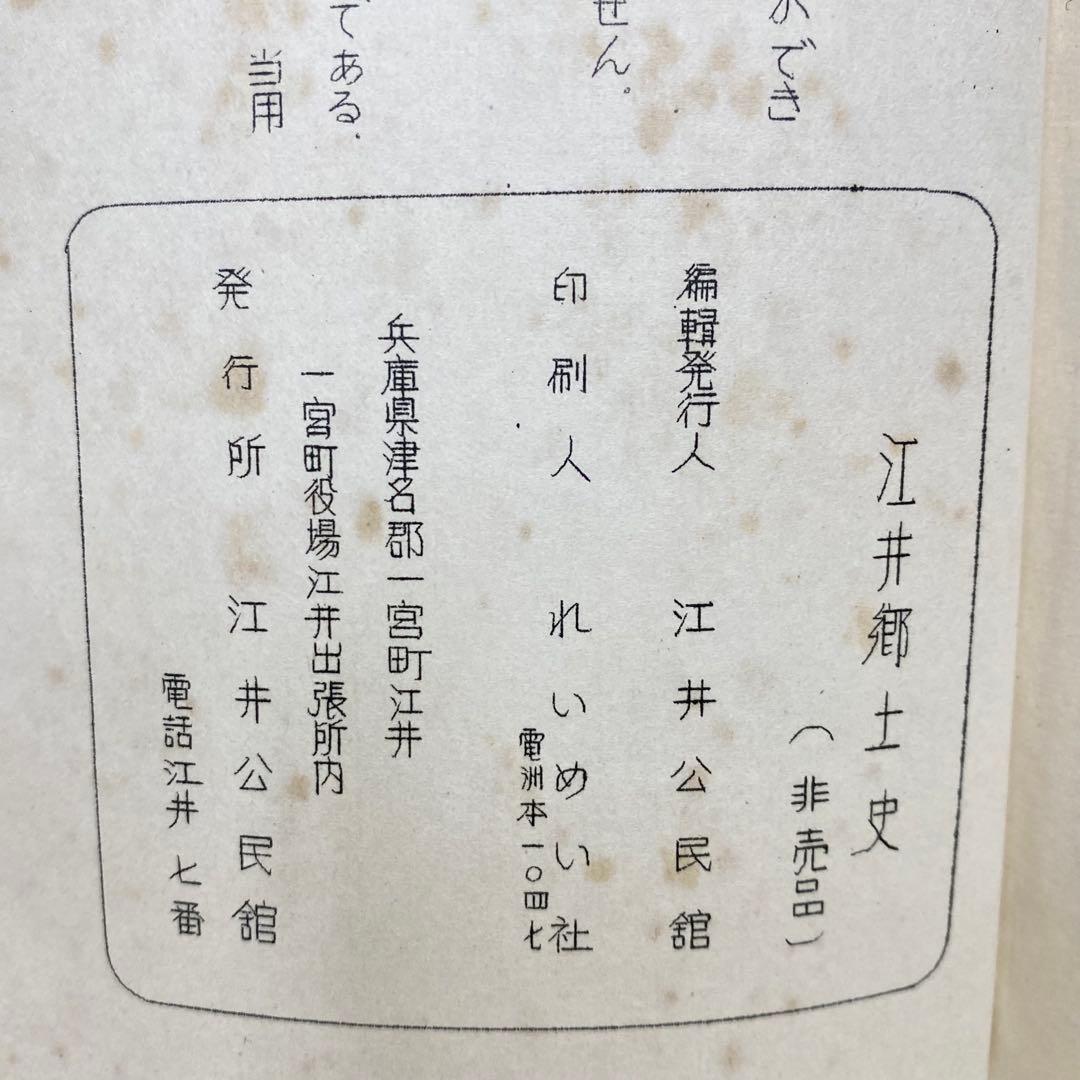 でき
せん。
である、
当用
江井郷土史
（非売品）
編輯発行人 江井公民舘
印刷人 れいめい社
電洲本一〇四七
兵庫県津名郡一宮町江井
一宮町役場江井出張所内
発行所 江井公民舘
電話江井七番